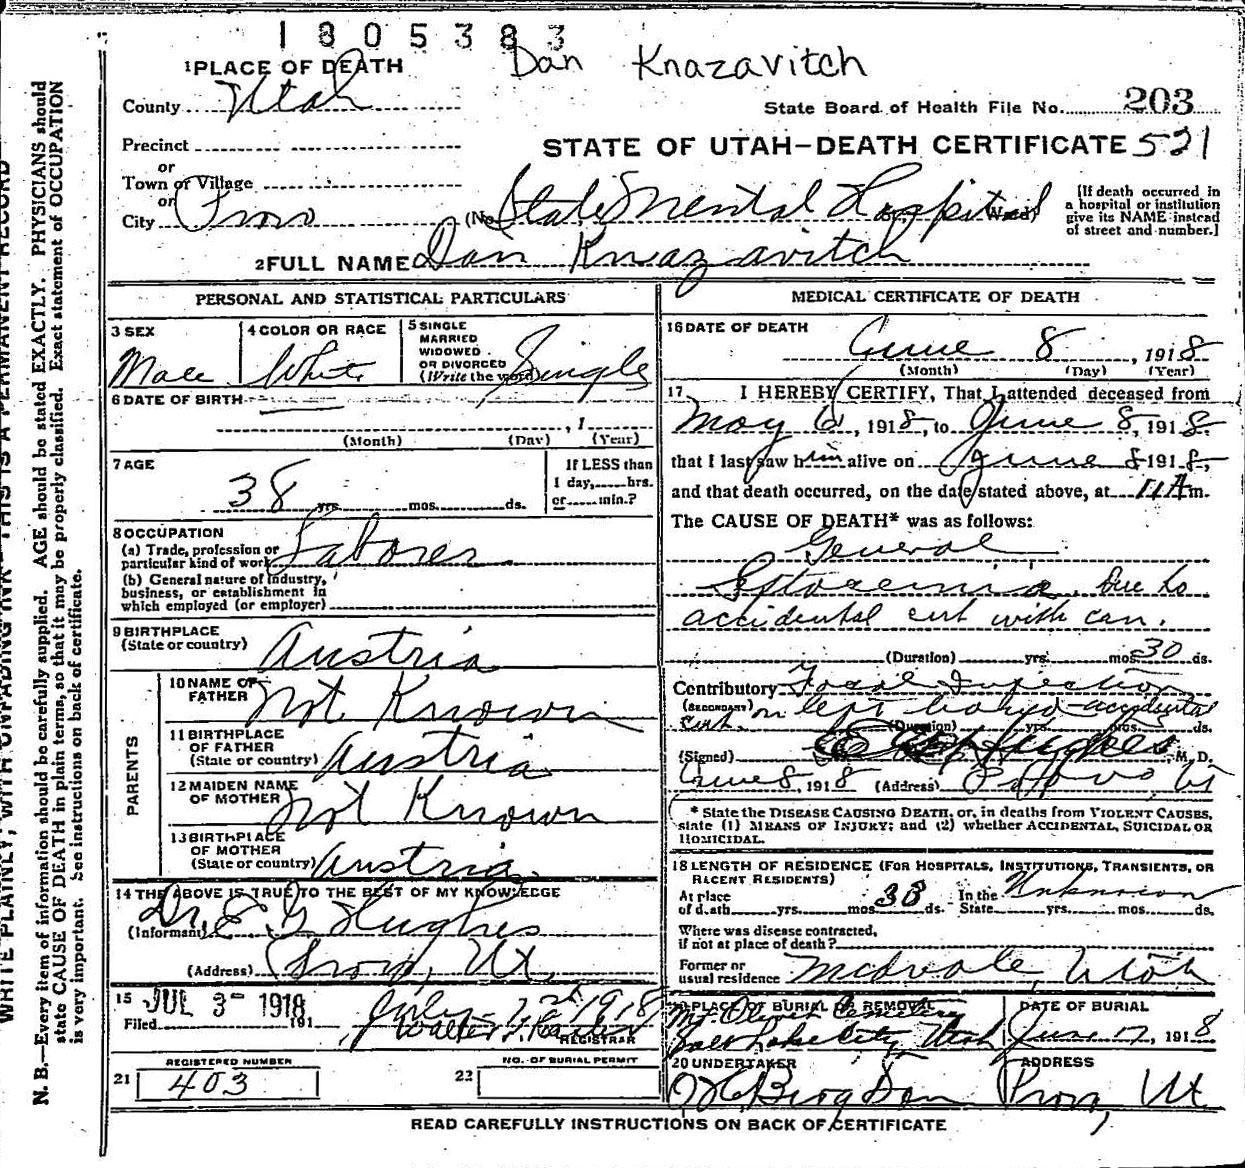 1805383
Dan Knazavitch
1 PLACE OF DEATH
County Utah
State Board of Health File No. 203
Precinct
STATE OF UTAH—DEATH CERTIFICATE 521
or
Town or Village
or
City Provo (No. State Mental Hospital Ward)
[If death occurred in
a hospital or institution
give its NAME instead
of street and number.]
2 FULL NAME Dan Knazavitch
PERSONAL AND STATISTICAL PARTICULARS
3 SEX
Male
4 COLOR OR RACE
White
5 SINGLE
MARRIED
WIDOWED
OR DIVORCED
(Write the word)
Single
6 DATE OF BIRTH
, 1
(Month) (Day) (Year)
7 AGE
38 yrs. mos. ds.
If LESS than
1 day, hrs.
or min.?
8 OCCUPATION
(a) Trade, profession or
particular kind of work Laborer
(b) General nature of industry,
business, or establishment in
which employed (or employer)
9 BIRTHPLACE
(State or country) Austria
PARENTS
10 NAME OF
FATHER Not Known
11 BIRTHPLACE
OF FATHER
(State or country) Austria
12 MAIDEN NAME
OF MOTHER Not Known
13 BIRTHPLACE
OF MOTHER
(State or country) Austria
14 THE ABOVE IS TRUE TO THE BEST OF MY KNOWLEDGE
(Informant) Dr. E. G. Hughes
(Address) Provo, Ut.
15 JUL 3 - 1918
Filed 191
July 1918
Walter T.
REGISTRAR
REGISTERED NUMBER
21 403
NO. OF BURIAL PERMIT
22
MEDICAL CERTIFICATE OF DEATH
16 DATE OF DEATH
June 8, 1918
(Month) (Day) (Year)
17 I HEREBY CERTIFY, That I attended deceased from
May 6, 1918, to June 8, 1918.
that I last saw him alive on June 8 1918,
and that death occurred, on the date stated above, at 11 A m.
The CAUSE OF DEATH* was as follows:
General
Septoxemia. Due to
accidental cut with can.
(Duration) yrs. mos. 30 ds.
Contributory Focal Infection
(SECONDARY) cut on left hand - accidental
(Duration) yrs. mos. ds.
(Signed) Hughes, M. D.
June 8, 1918 (Address) Provo, Ut
* State the DISEASE CAUSING DEATH, or, in deaths from VIOLENT CAUSES,
state (1) MEANS OF INJURY; and (2) whether ACCIDENTAL, SUICIDAL OR
HOMICIDAL.
18 LENGTH OF RESIDENCE (FOR HOSPITALS, INSTITUTIONS, TRANSIENTS, OR
RECENT RESIDENTS)
At place
of death yrs. mos. 33 ds. In the
State Unknown yrs. mos. ds.
Where was disease contracted,
if not at place of death?
Former or
usual residence Midvale, Utah
19 PLACE OF BURIAL OR REMOVAL
Mt. Olivet Cemetery
Salt Lake City, Utah
DATE OF BURIAL
June 12, 1918
20 UNDERTAKER
Berg
ADDRESS
Provo, Ut
READ CAREFULLY INSTRUCTIONS ON BACK OF CERTIFICATE
WRITE PLAINLY, WITH UNFADING INK—THIS IS A PERMANENT RECORD
N. B.—Every item of information should be carefully supplied. AGE should be stated EXACTLY. PHYSICIANS should
state CAUSE OF DEATH in plain terms, so that it may be properly classified. Exact statement of OCCUPATION
is very important. See instructions on back of certificate.